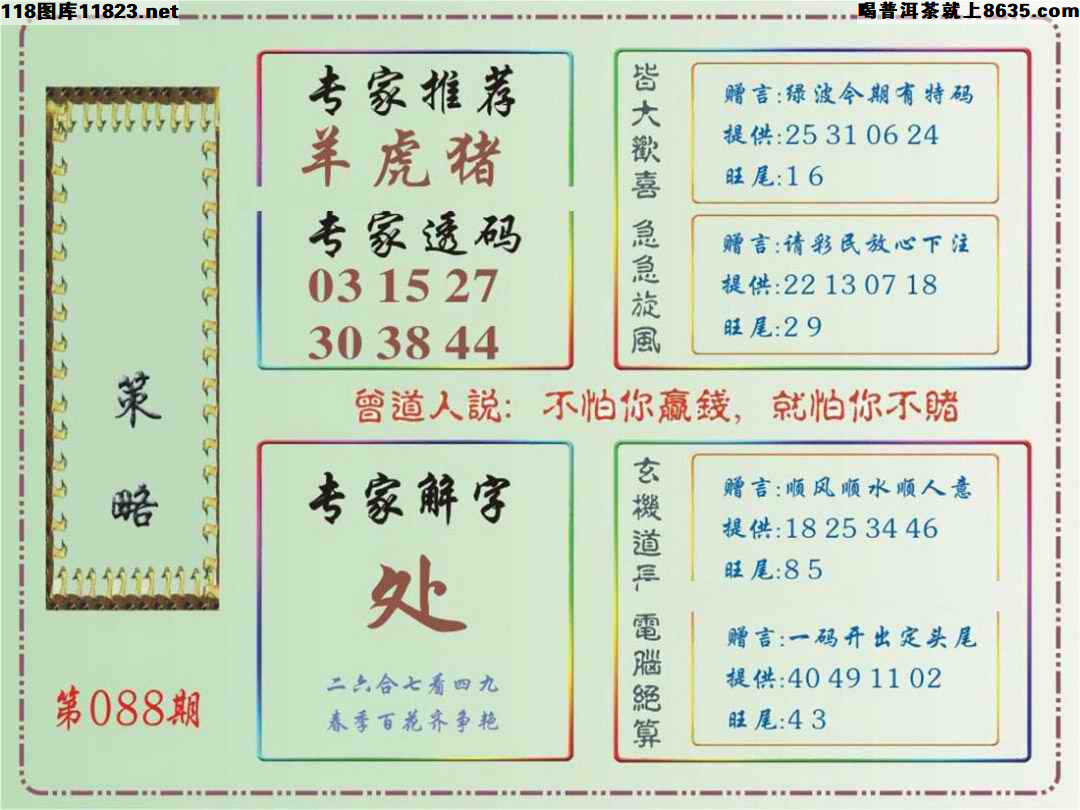 118图库11823.net
喝普洱茶就上8635.com
策略
第088期
专家推荐
羊虎猪
专家透码
03 15 27
30 38 44
皆大歡喜
赠言:绿波今期有特码
提供:25 31 06 24
旺尾:1 6
急急旋風
赠言:请彩民放心下注
提供:22 13 07 18
旺尾:2 9
曾道人説:不怕你贏錢,就怕你不賭
专家解字
处
二六合七看四九
春季百花齐争艳
玄機道長
赠言:顺风顺水顺人意
提供:18 25 34 46
旺尾:8 5
電腦絕算
赠言:一码开出定头尾
提供:40 49 11 02
旺尾:4 3